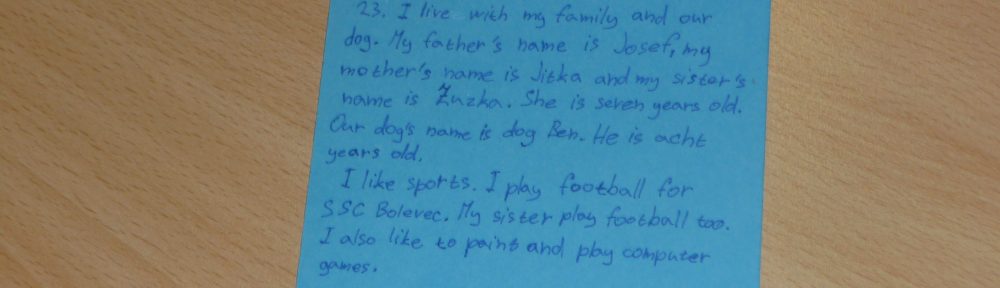 23. I live with my family and our
dog. My father's name is Josef, my
mother's name is Jitka and my sister's
name is Žuzka. She is seven years old.
Our dog's name is dog Ben. He is acht
years old.
I like sports. I play football for
SSC Bolevec. My sister play football too.
I also like to paint and play computer
games.